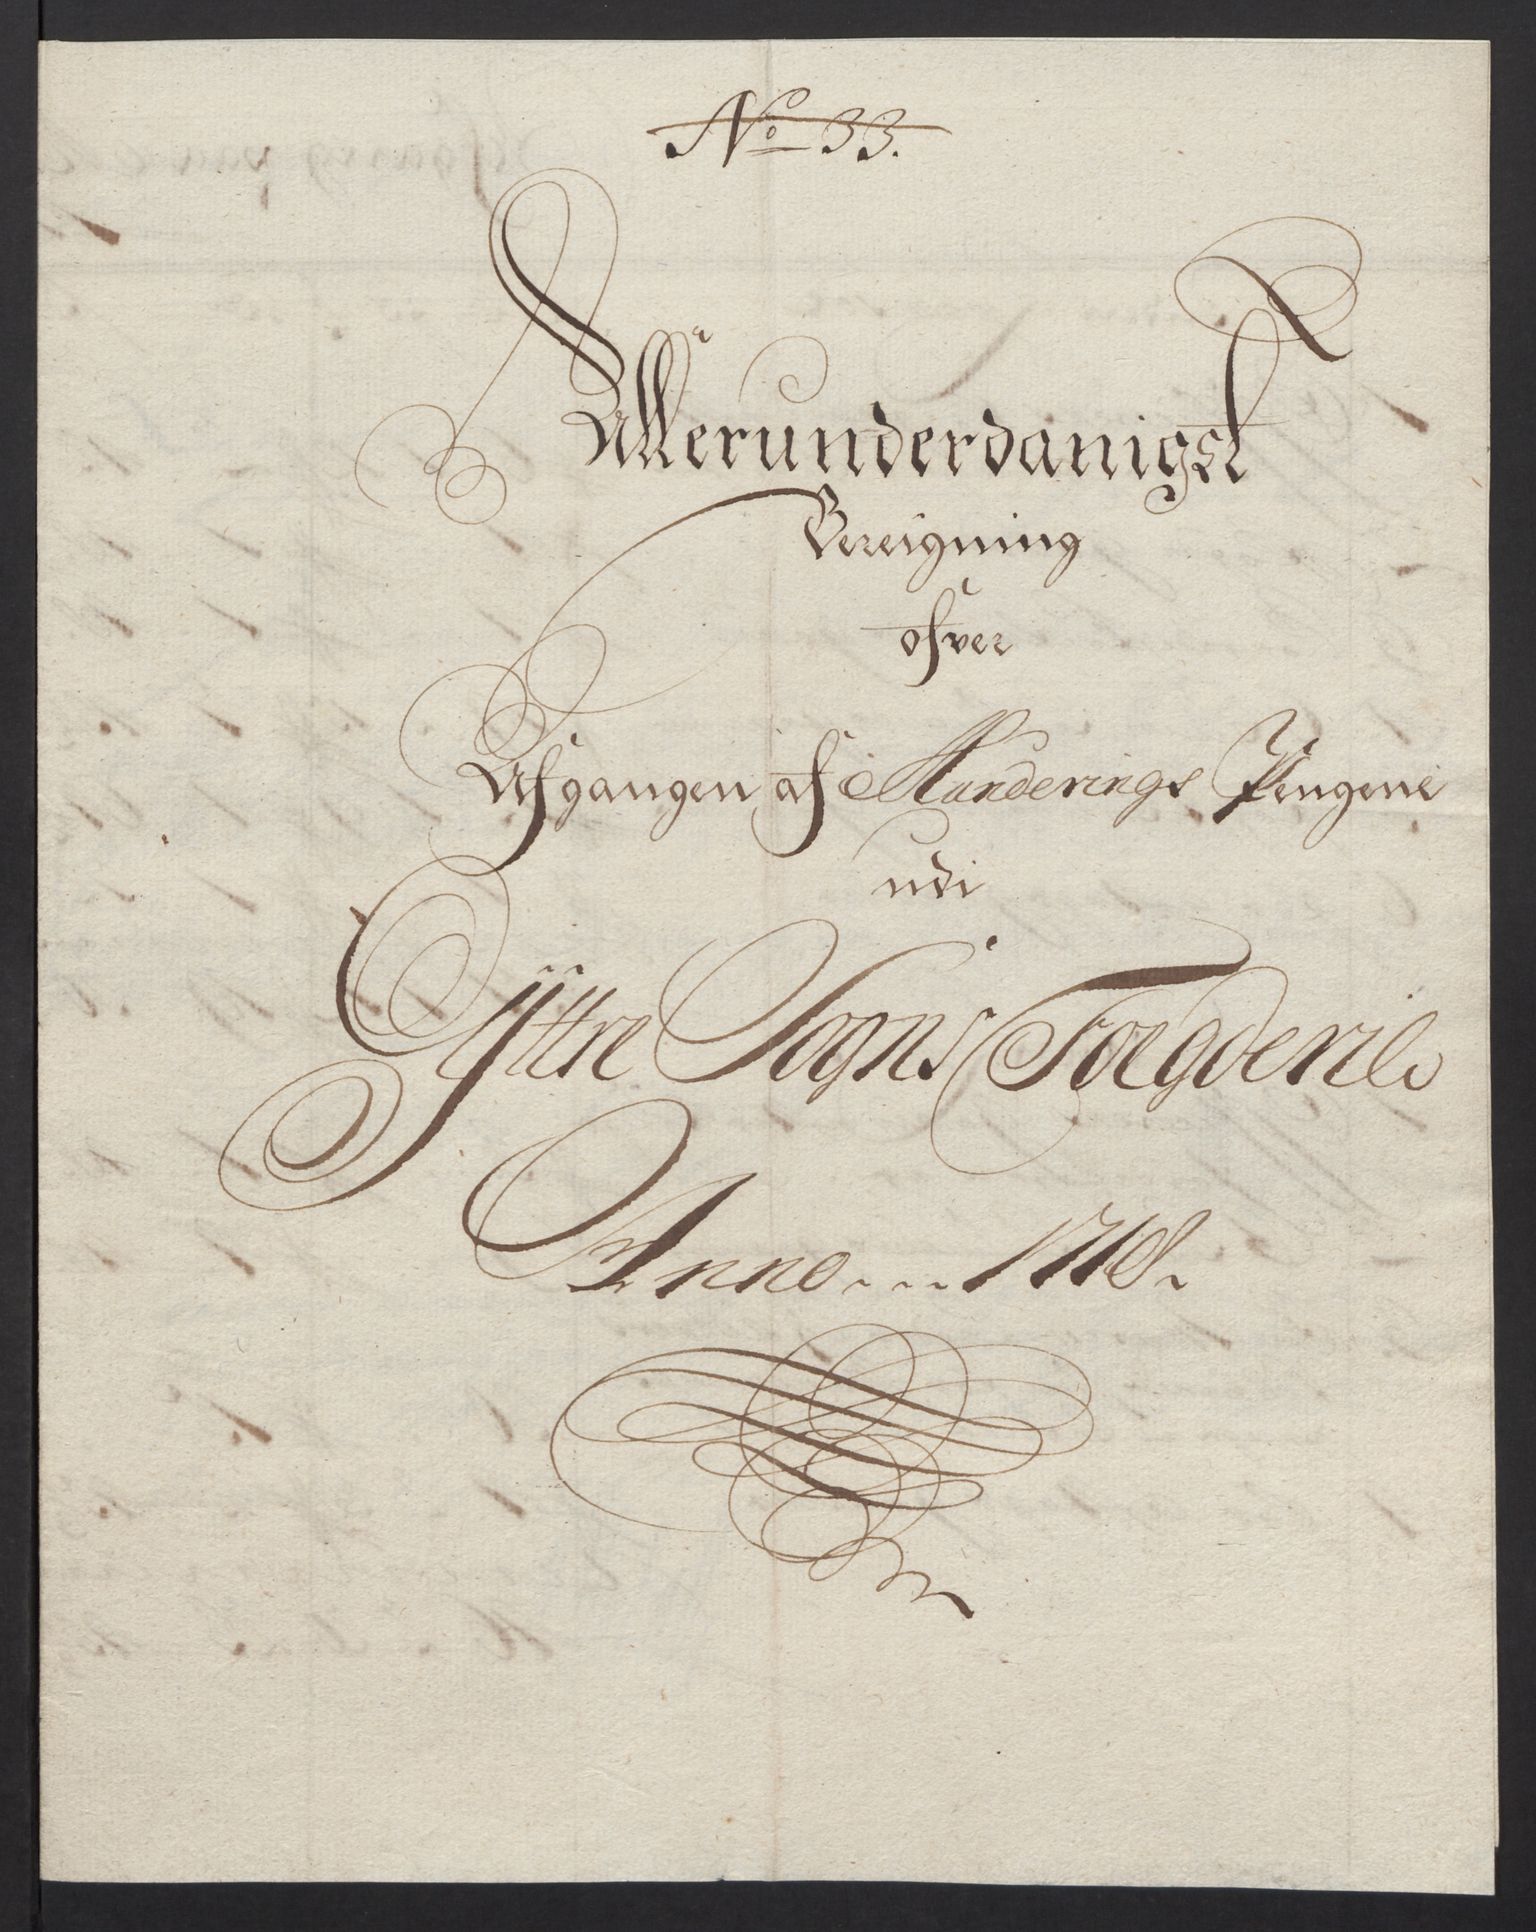 No 33.
Allerunderdanigst
Bereigning
ofver
Afgangen af Munderings Pengene
udi
Ÿttre Sogns Foegderie
Anno 1718.